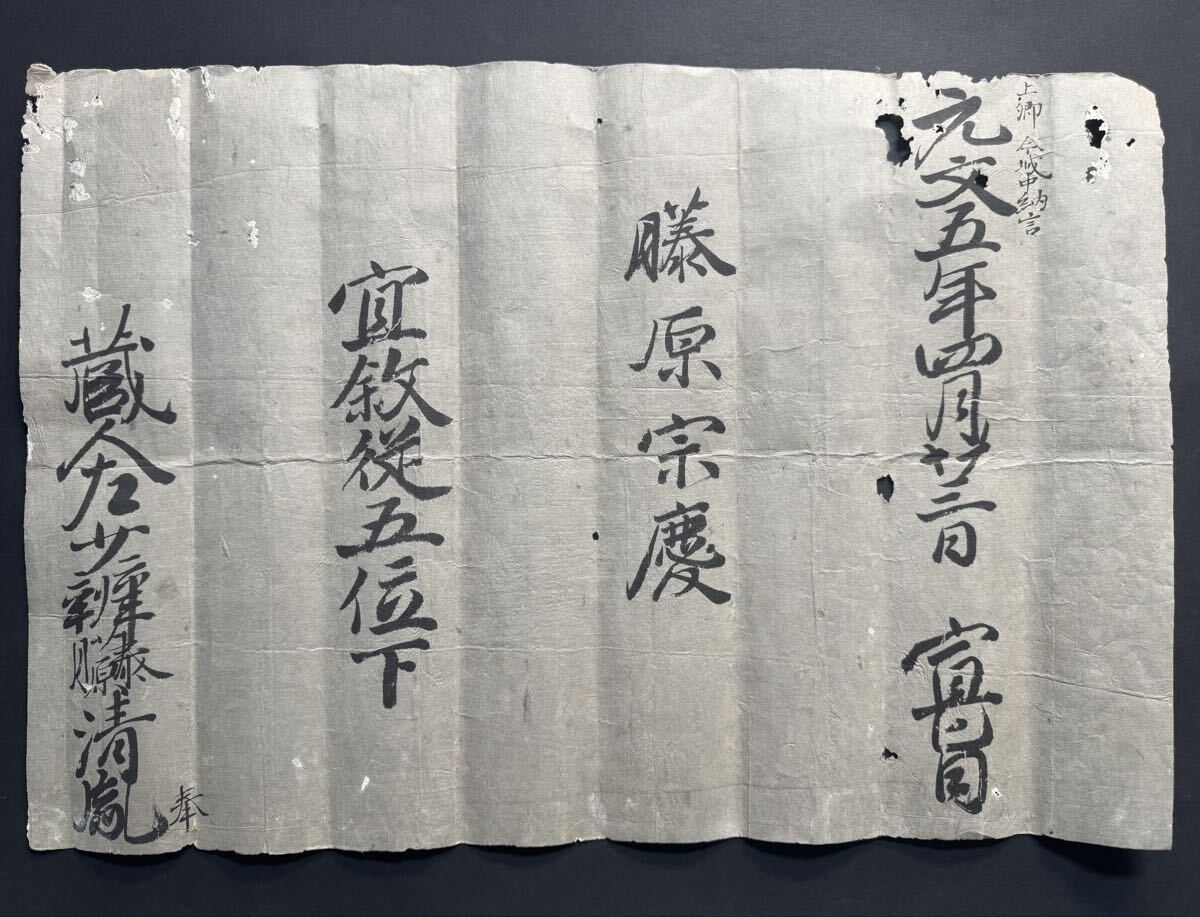 上卿 今城中納言
元文五年四月廿三日 宣旨
藤原宗慶
宜敘從五位下
藏人左少辨藤原清胤 奉